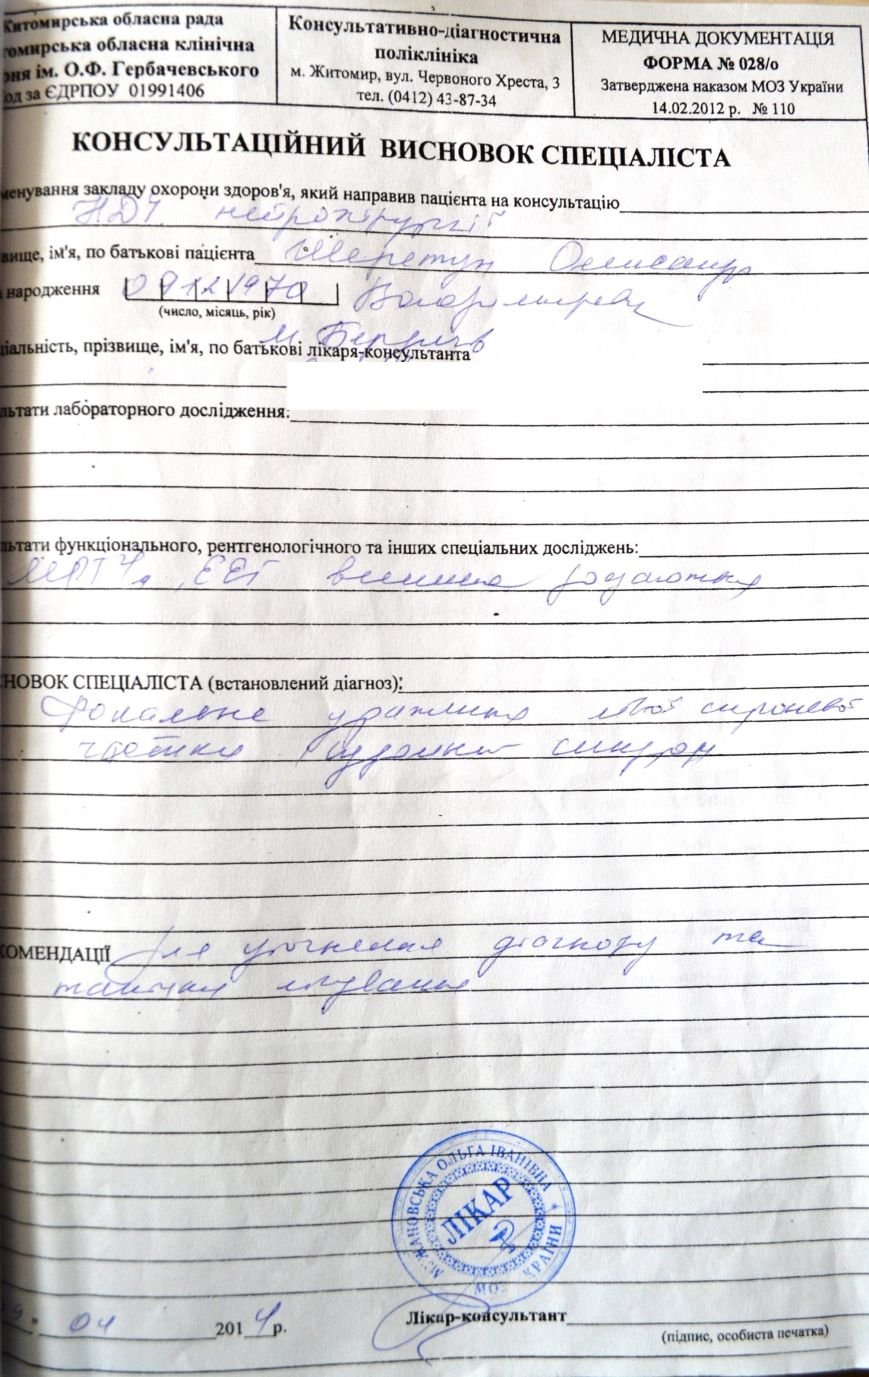 Житомирська обласна рада
томирська обласна клінічна
рня ім. О.Ф. Гербачевського
од за ЄДРПОУ 01991406
Консультативно-діагностична
поліклініка
м. Житомир, вул. Червоного Хреста, 3
тел. (0412) 43-87-34
МЕДИЧНА ДОКУМЕНТАЦІЯ
ФОРМА № 028/о
Затверджена наказом МОЗ України
14.02.2012 р. № 110
КОНСУЛЬТАЦІЙНИЙ ВИСНОВОК СПЕЦІАЛІСТА
менування закладу охорони здоров'я, який направив пацієнта на консультацію
нейрохірургії
вище, ім'я, по батькові пацієнта Шеретун Олександр
народження 09121970 Володимирович
(число, місяць, рік)
м. Бердичів
ціальність, прізвище, ім'я, по батькові лікаря-консультанта
льтати лабораторного дослідження:
льтати функціонального, рентгенологічного та інших спеціальних досліджень:
МРТ ЕЕГ
СНОВОК СПЕЦІАЛІСТА (встановлений діагноз):
ураження лівої скроневої
частки синдром
КОМЕНДАЦІЇ Для уточнення діагнозу та
тактики лікування
ОЛЬГА ІВАНІВНА
ЛІКАР
МОЗ УКРАЇНИ
04 2014 р.
Лікар-консультант
(підпис, особиста печатка)